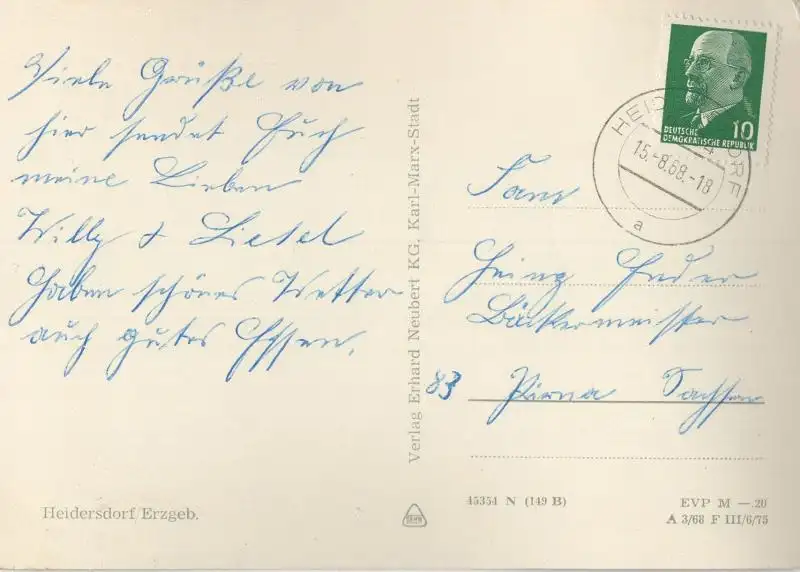 Viele Grüße von
hier sendet Euch
meine Lieben
Willy & Liesel
Haben schönes Wetter
auch gutes Essen.
Heidersdorf/Erzgeb.
Verlag Erhard Neubert KG, Karl-Marx-Stadt
10
DEUTSCHE
DEMOKRATISCHE REPUBLIK
15.-8.68.-18
a
Fam
Heinz Ender
Bäckermeister
83 Pirna Sachsen
45354 N (149 B)
EVP M —.20
A 3/68 F III/6/75